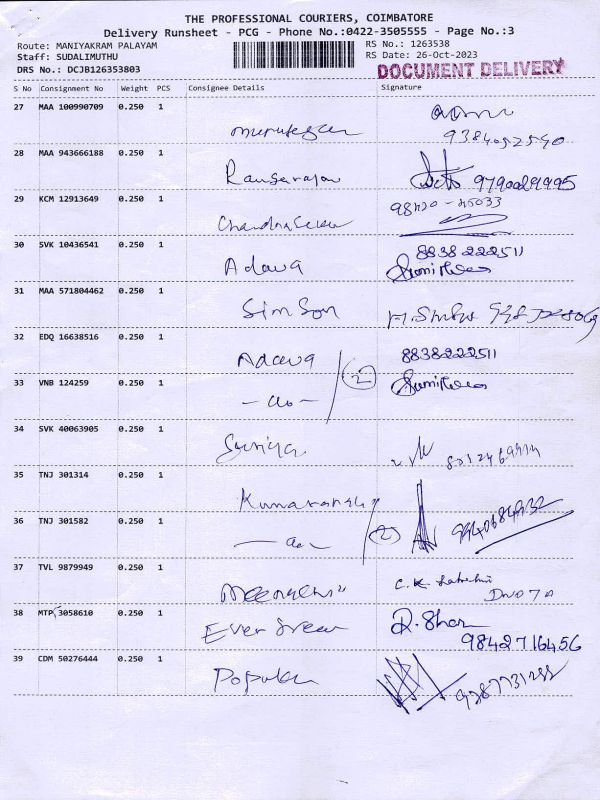 THE PROFESSIONAL COURIERS, COIMBATORE
Delivery Runsheet - PCG - Phone No.:0422-3505555 - Page No.:3
Route: MANIYAKRAM PALAYAM
RS No.: 1263538
Staff: SUDALIMUTHU
RS Date: 26-Oct-2023
DRS No.: DCJB126353803
DOCUMENT DELIVERY
S No Consignment No Weight PCS Consignee Details Signature
27 MAA 100990709 0.250 1
murugesan
28 MAA 943666188 0.250 1
Rangarajan 9790029995
29 KCM 12913649 0.250 1 98420-45033
Chandrasekar
30 SVK 10436541 0.250 1 8838222511
Adawa
31 MAA 571804462 0.250 1
Simson
32 EDQ 16638516 0.250 1
Adawa 8838222511
33 VNB 124259 0.250 1 2
- do -
34 SVK 40063905 0.250 1
Suriya
35 TNJ 301314 0.250 1
36 TNJ 301582 0.250 1 2
- do -
37 TVL 9879949 0.250 1
38 MTP 3058610 0.250 1
Ever Green 9842716456
39 CDM 50276444 0.250 1
Popular